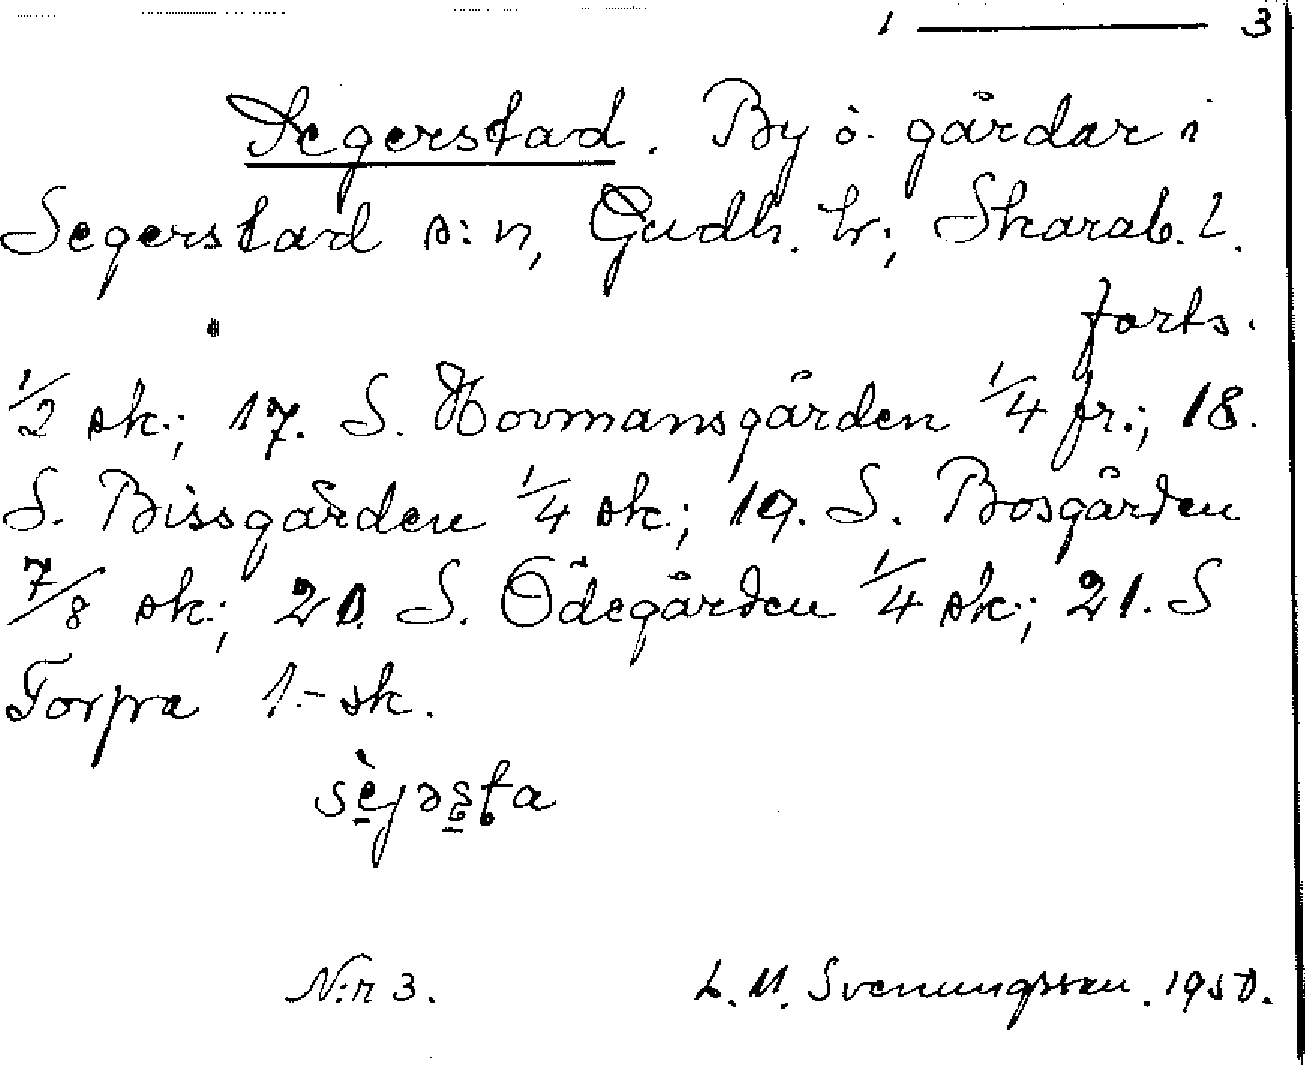 1 ——— 3
Segerstad. By o. gårdar i
Segerstad s:n, Gudh. hr; Skarab. l.
forts.
1/2 sk.; 17. S. Hovmansgården 1/4 fr.; 18.
S. Bissgården 1/4 sk.; 19. S. Bosgården
7/8 sk.; 20. S. Ödegården 1/4 sk.; 21. S
Torpra 1.- sk.
N:r 3.
L. M. Svenungsson. 1950.